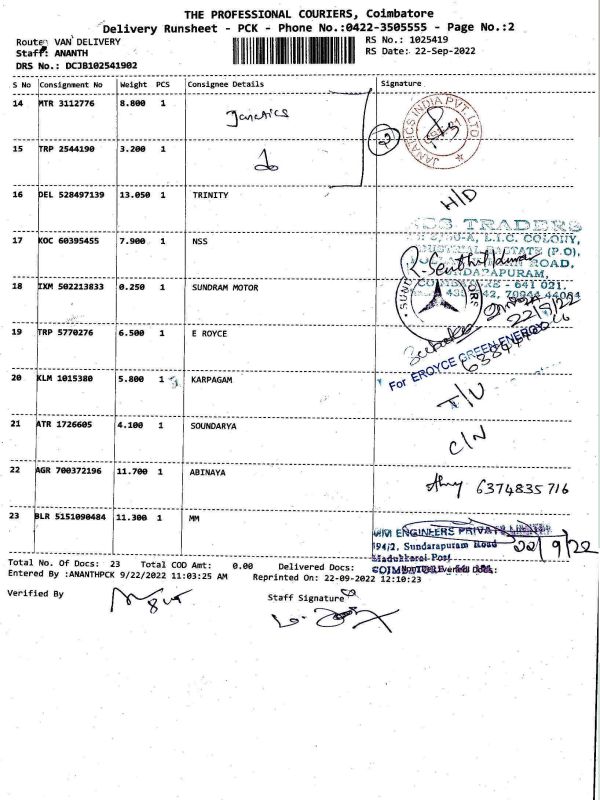 THE PROFESSIONAL COURIERS, Coimbatore
Delivery Runsheet - PCK - Phone No.:0422-3505555 - Page No.:2
Route: VAN DELIVERY
RS No.: 1025419
Staff: ANANTH
RS Date: 22-Sep-2022
DRS No.: DCJB102541902
S No Consignment No Weight PCS Consignee Details Signature
14 MTR 3112776 8.800 1 Janatics
JANATICS INDIA PVT. LTD
2
15 TRP 2544190 3.200 1
16 DEL 528497139 13.050 1 TRINITY H/D
TRADERS
L.I.C. COLONY,
17 KOC 60395455 7.900 1 NSS
ROAD,
R. Senthilkumar
SUNDARAPURAM,
18 IXM 502213833 0.250 1 SUNDRAM MOTOR
COIMBATORE - 641 021.
42, 70944 44004
22/9/22
19 TRP 5770276 6.500 1 E ROYCE
For EROYCE GREEN ENERGY
20 KLM 1015380 5.800 1 KARPAGAM T/U
21 ATR 1726605 4.100 1 SOUNDARYA C/N
22 AGR 700372196 11.700 1 ABINAYA 6374835716
23 BLR 5151090484 11.300 1 MM
MM ENGINEERS PRIVATE LIMITED
394/2, Sundarapuram Road 22/9/22
Madukkarai Post
Total No. Of Docs: 23 Total COD Amt: 0.00 Delivered Docs:
COIMBATORE
Entered By :ANANTHPCK 9/22/2022 11:03:25 AM Reprinted On: 22-09-2022 12:10:23
Verified By Staff Signature